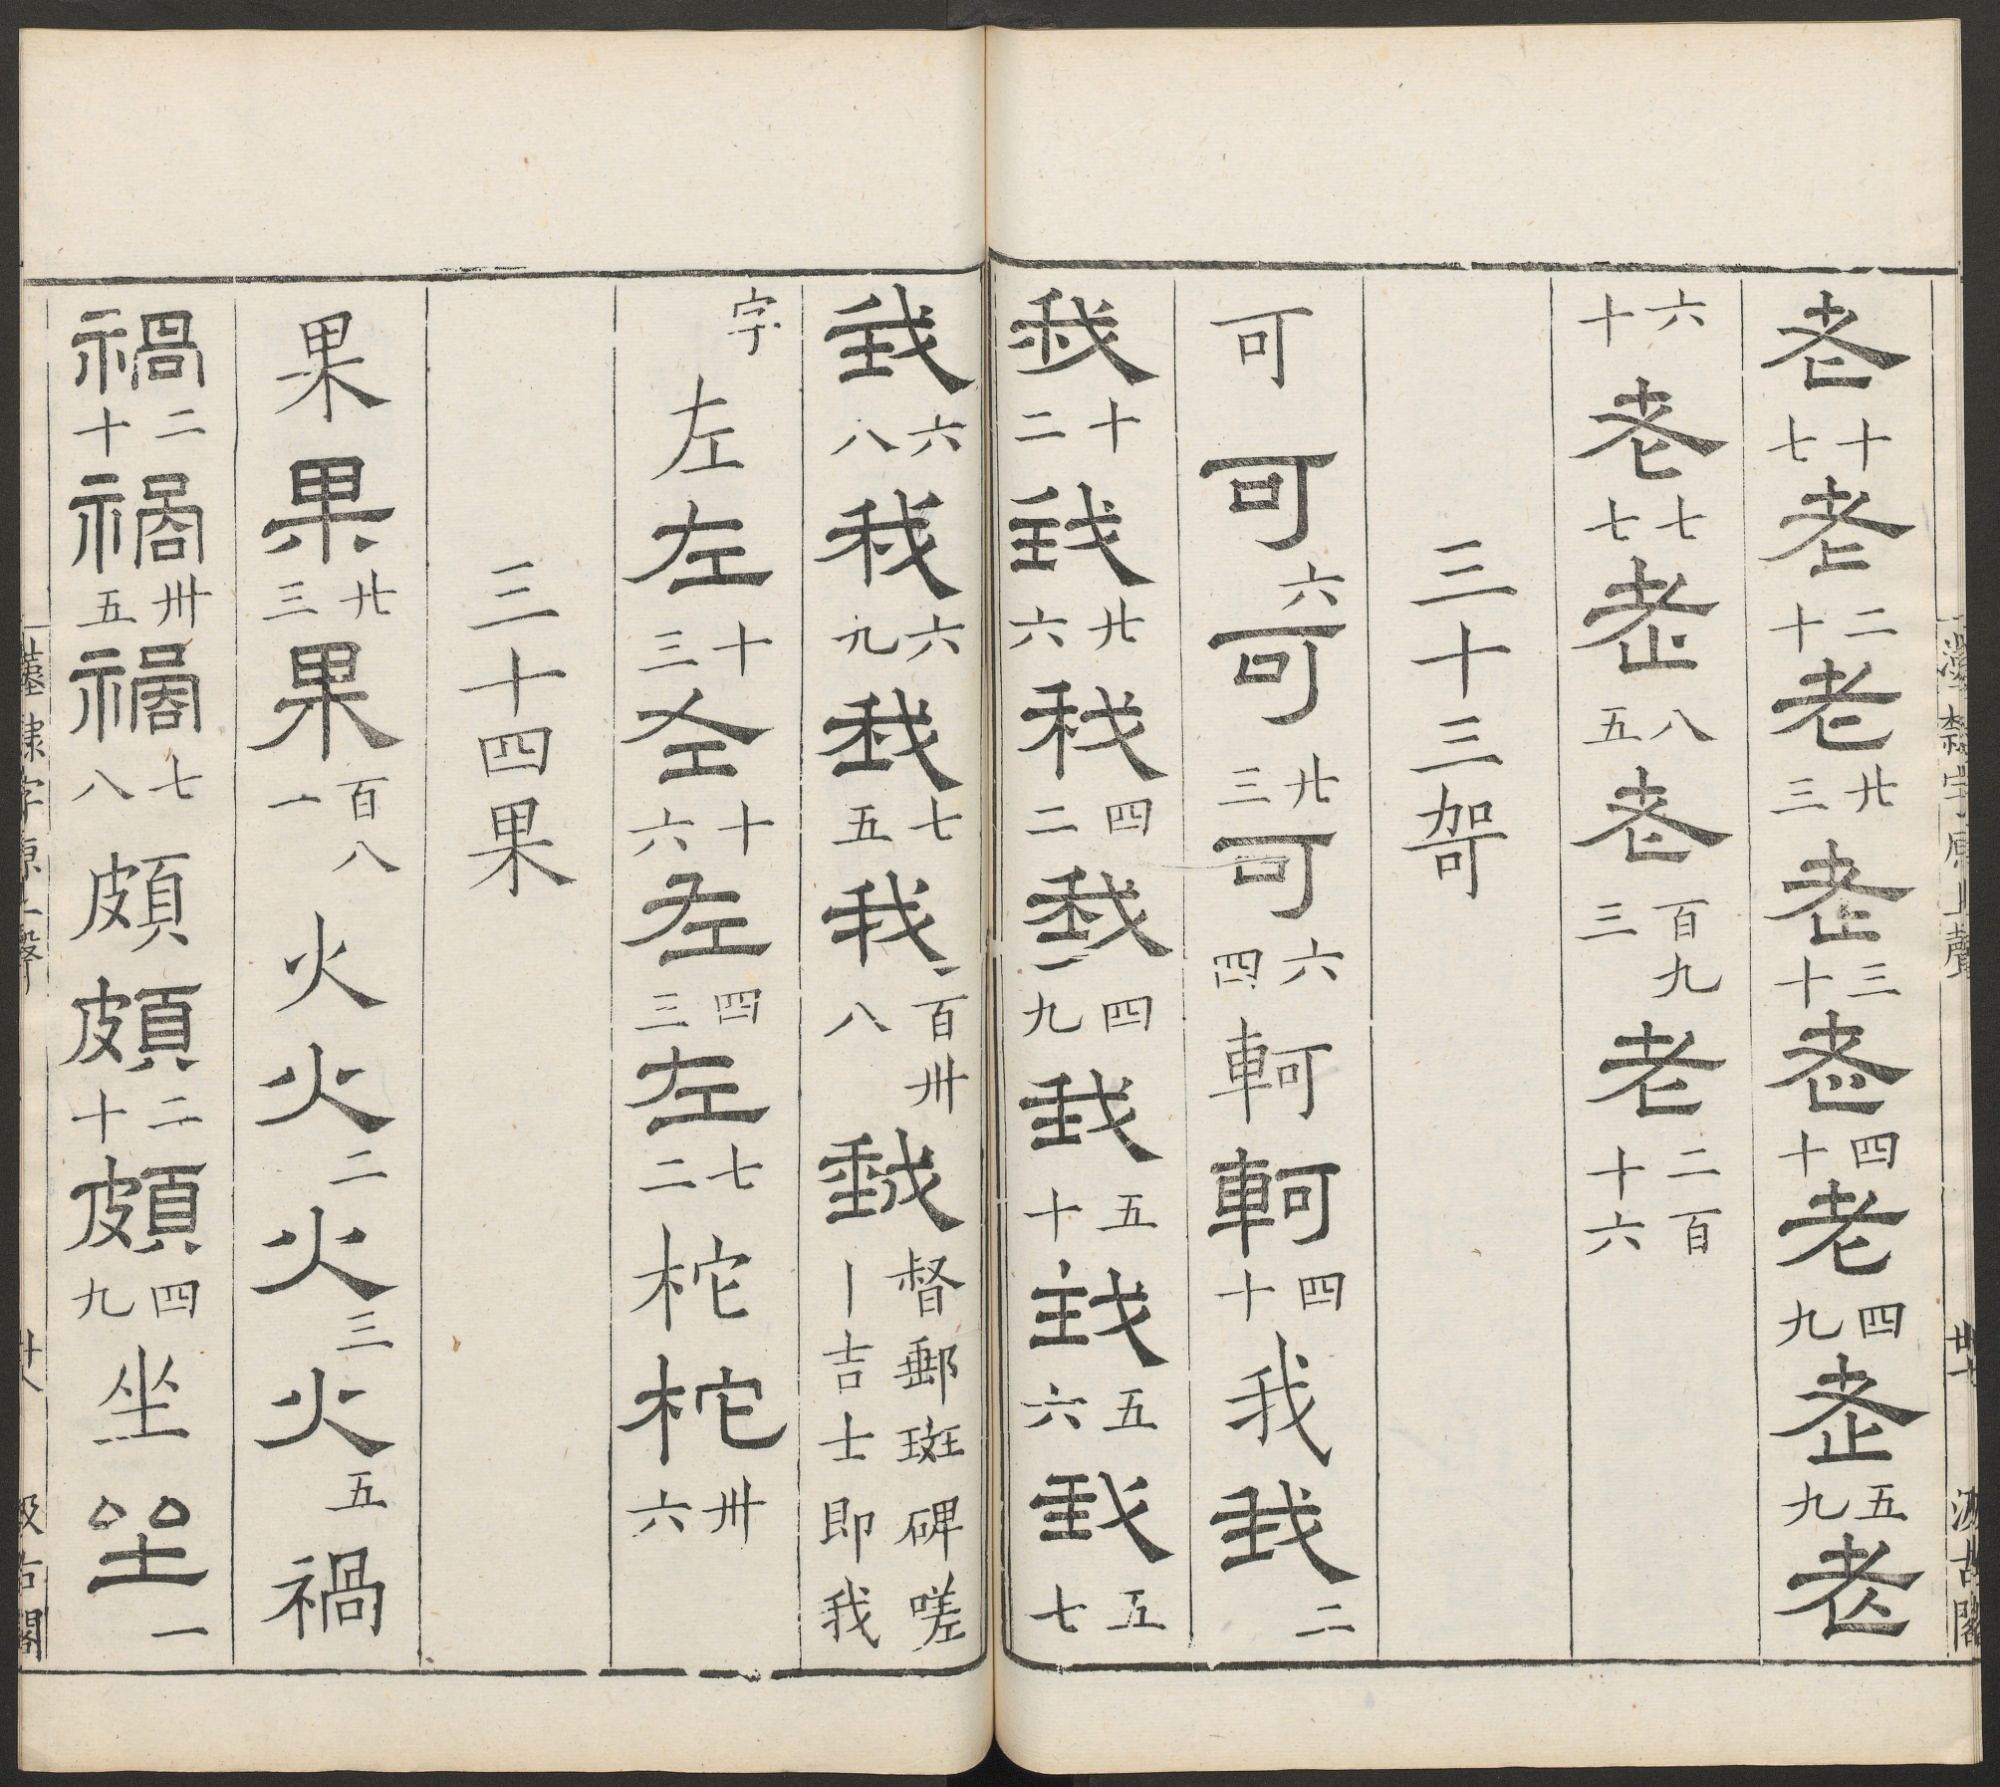 漢隸字原上聲 廿七 汲古閣
老十七老二十老廿三老三十老四十老四九老五九老
六十老七七老八五老百九三老二百十六
三十三哿
可可六可廿三可六四軻軻四十我我二
我十二我廿六我四二我四九我五十我五六我五七
我六八我六九我七五我百卅八我督郵斑碑嗟丨吉士即我
字左左十三左十六左四三左七二柁柁卅六
三十四果
果果廿三果百八一火火二火三火五禍
禍二十禍卅五禍七八頗頗二十頗四九坐坐一
漢隸字原上聲 廿八 汲古閣